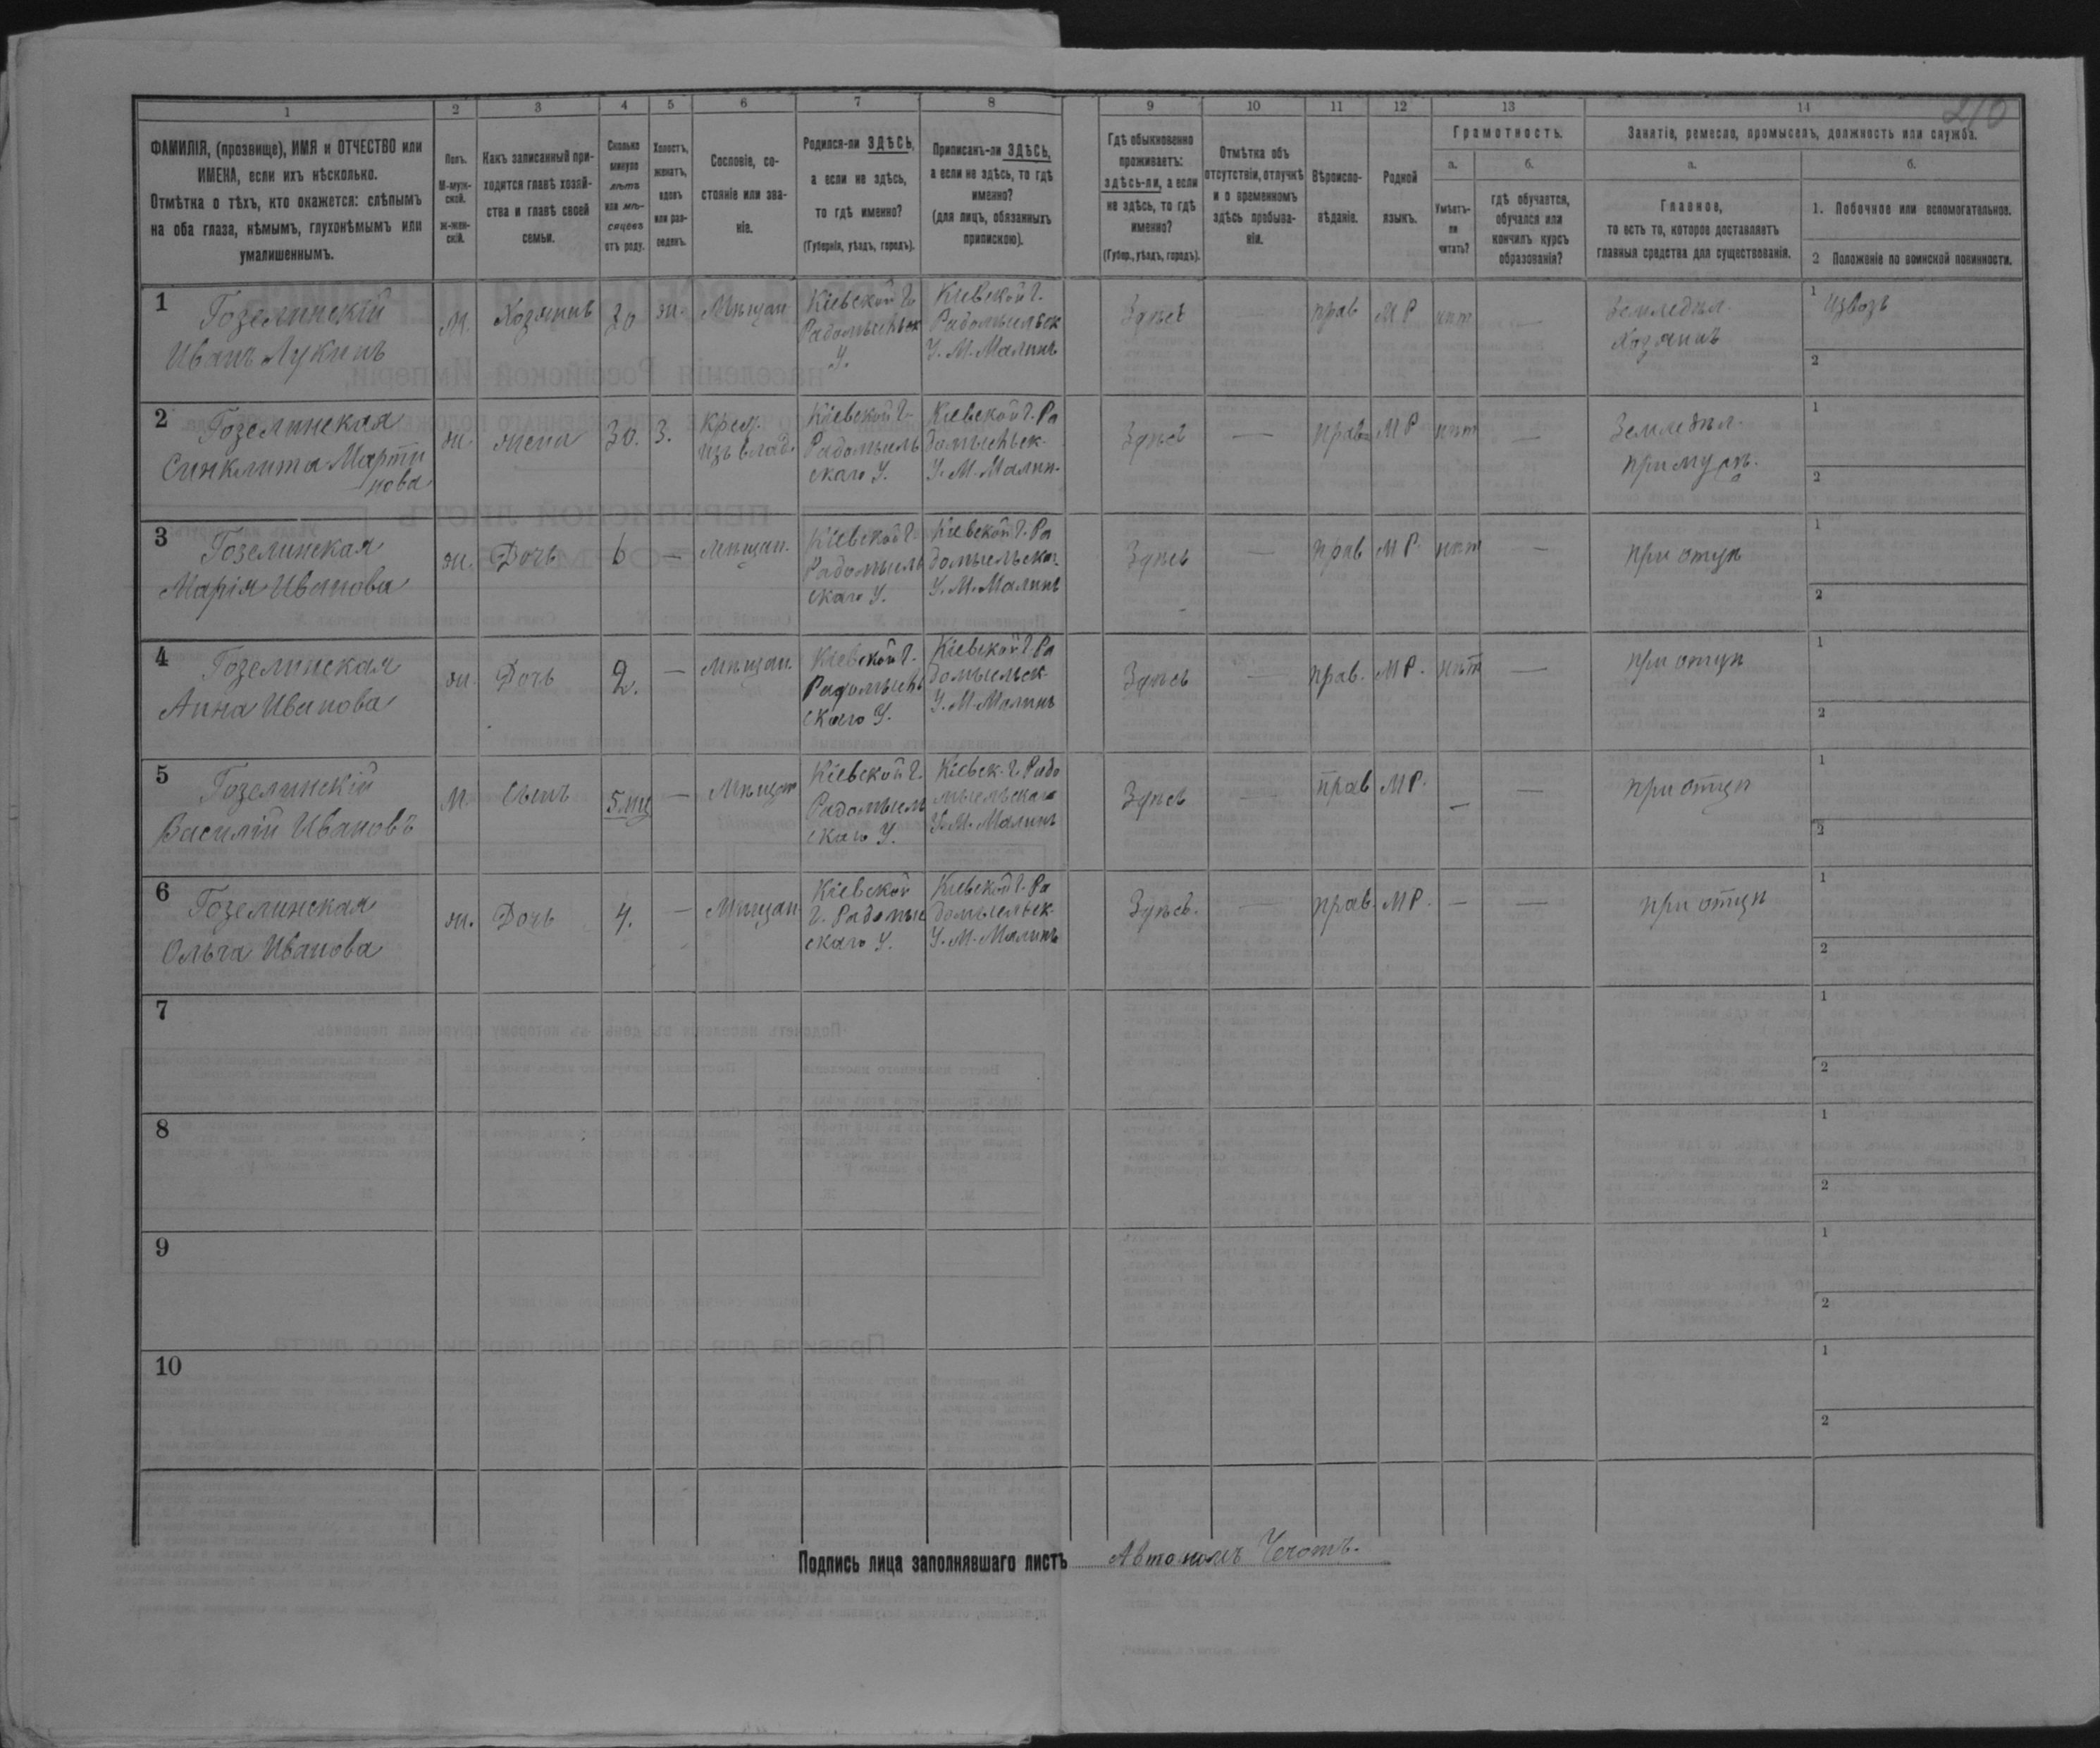 210
1 2 3 4 5 6 7 8 9 10 11 12 13 14
ФАМИЛІЯ, (прозвище), ИМЯ и ОТЧЕСТВО или
ИМЕНА, если ихъ нѣсколько.
Отмѣтка о тѣхъ, кто окажется: слѣпымъ
на оба глаза, нѣмымъ, глухонѣмымъ или
умалишеннымъ.
Полъ.
М-муж-
ской.
ж-жен-
скій.
Какъ записанный при-
ходится главѣ хозяй-
ства и главѣ своей
семьи.
Сколько
минуло
лѣтъ
или мѣ-
сяцевъ
отъ роду.
Холостъ,
женатъ,
вдовъ
или раз-
веденъ.
Сословіе, со-
стояніе или зва-
ніе.
Родился-ли ЗДѢСЬ,
а если не здѣсь,
то гдѣ именно?
(Губернія, уѣздъ, городъ).
Приписанъ-ли ЗДѢСЬ,
а если не здѣсь, то гдѣ
именно?
(для лицъ, обязанныхъ
припискою).
Гдѣ обыкновенно
проживаетъ:
здѣсь-ли, а если
не здѣсь, то гдѣ
именно?
(Губер., уѣздъ, городъ).
Отмѣтка объ
отсутствіи, отлучкѣ
и о временномъ
здѣсь пребыва-
ніи.
Вѣроиспо-
вѣданіе.
Родной
языкъ.
Грамотность.
а.
Умѣетъ-
ли
читать?
б.
гдѣ обучается,
обучался или
кончилъ курсъ
образованія?
Занятіе, ремесло, промыселъ, должность или служба.
а.
Главное,
то есть то, которое доставляетъ
главныя средства для существованія.
б.
1. Побочное или вспомогательное.
2 Положеніе по воинской повинности.
1
Гозелинскій
Иванъ Лукинъ
м.
Хозяинъ
30
ж.
Мѣщан
Кіевской г.
Радомысльск
У.
Кіевской г.
Радомысльск
У. М. Малинъ
Здѣсь
прав
МР
нѣт
—
Земледѣл.
Хозяинъ
1 Извозъ
2
2
Гозелинская
Синклита Марти
нова
ж.
жена
30.
З.
Крест.
изъ влад.
Кіевской г.
Радомысль
скаго У.
Кіевской г. Ра
домысльск.
У. М. Малин.
Здѣсь
—
прав
МР
нѣт
—
Земледѣл.
при мужѣ.
1
2
3
Гозелинская
Марія Иванова
ж.
Дочь
6
—
Мѣщан.
Кіевской г.
Радомысль
скаго У.
Кіевской г. Ра
домысльска.
У. М. Малинъ
Здѣсь
—
прав
МР.
нѣт
—
при отцѣ
1
2
4
Гозелинская
Анна Иванова
ж.
Дочь
2.
—
Мѣщан.
Кіевской г.
Радомысль
скаго У.
Кіевской г. Ра
домысльск.
У. М. Малинъ
Здѣсь
—
прав.
МР.
нѣт
—
при отцѣ
1
2
5
Гозелинскій
Василій Ивановъ
М.
Сынъ
5 мц
—
Мѣщан
Кіевской г.
Радомысль
скаго У.
Кіевск. г. Радо
мысльскаго
У. М. Малинъ
Здѣсь
—
прав
МР.
—
—
при отцѣ
1
2
6
Гозелинская
Ольга Иванова
ж.
Дочь
4.
—
Мѣщан.
Кіевской
г. Радомыс
скаго У.
Кіевской г. Ра
домысльск.
У. М. Малинъ
Здѣсь.
—
прав.
МР.
—
—
при отцѣ
1
2
7
1
2
8
1
2
9
1
2
10
1
2
Подпись лица заполнявшаго листъ Автономъ